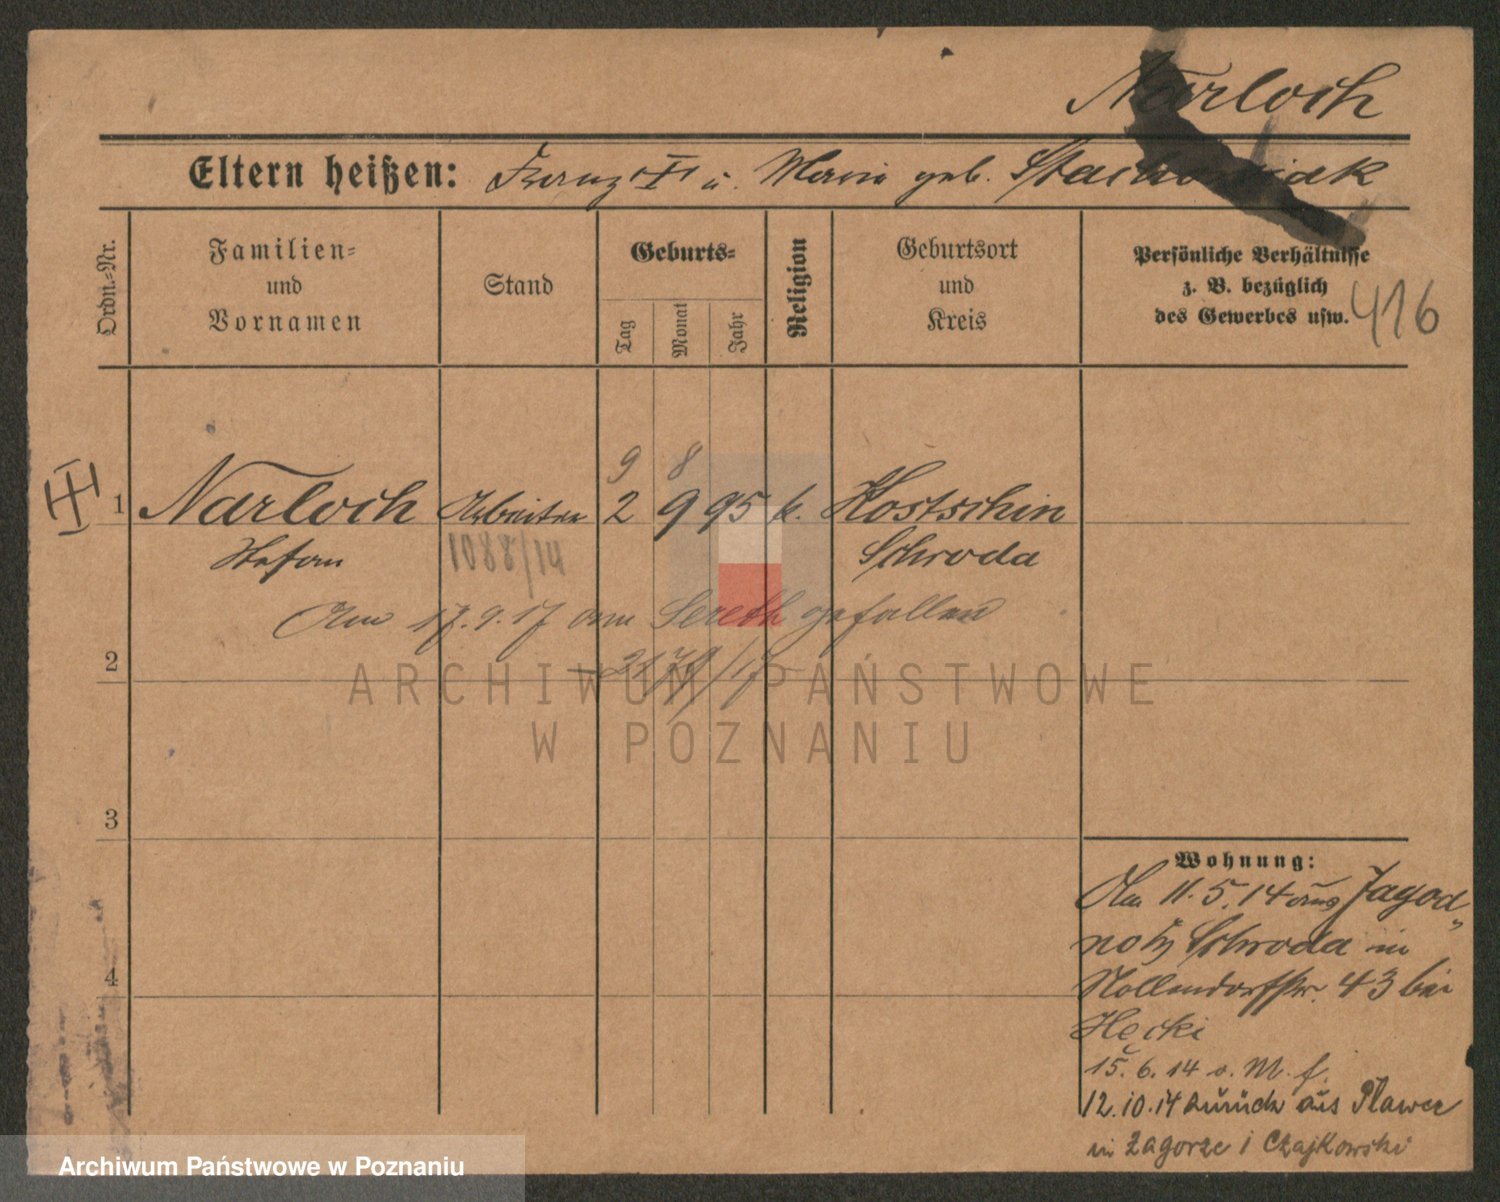 Narloch
Eltern heißen: Franz † u. Maria geb. Stachowiak
Ordn.-Nr.
Familien-
und
Vornamen
Stand
Geburts-
Tag
Monat
Jahr
Religion
Geburtsort
und
Kreis
Persönliche Verhältnisse
z. B. bezüglich
des Gewerbes usw.
416
9 8
1 Narloch Arbeiter 2 9 95 k. Kostschin
Stefan 1088/14 Schroda
Am 17.9.17 am Sereth gefallen
2
ARCHIWUM PAŃSTWOWE
W POZNANIU
3
4
Wohnung:
Am 11.5.14 aus Jagod-
notz Schroda in
Nollendorfstr. 43 bei
Hecki
15.6.14 o. M. f.
12.10.14 zurück aus Plawce
in Zagorze 1 Czajkowski
Archiwum Państwowe w Poznaniu